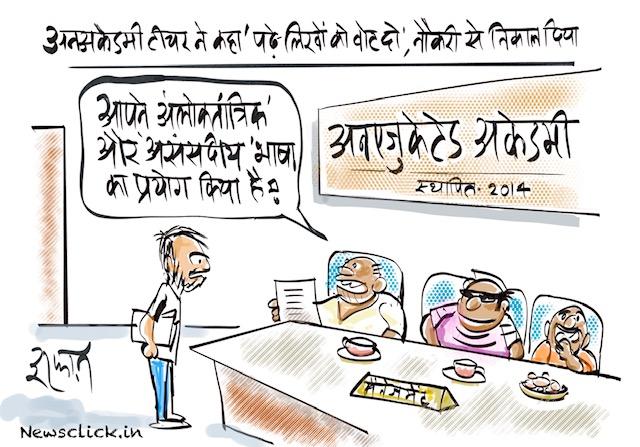 अनअकेडमी टीचर ने कहा 'पढ़े लिखों को वोट दो', नौकरी से निकाल दिया
आपने अलोकतांत्रिक
और असंसदीय भाषा
का प्रयोग किया है!
अनएजुकेटेड अकेडमी
स्थापित- 2014
मैनेजमेंट
इरफ़ान
Newsclick.in